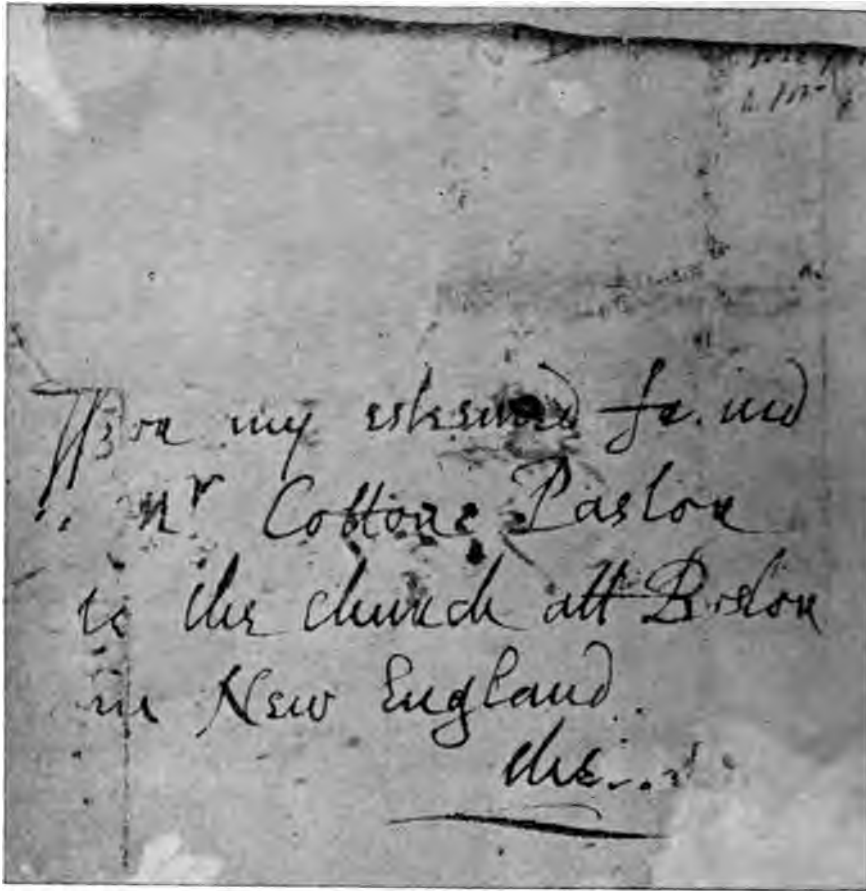 For my esteemed freind
Mr Cottone Pastor
to the church att Boston
in New England
these